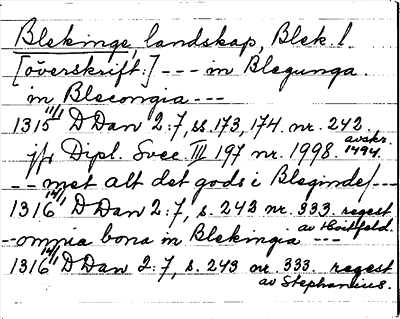 Blekinge, landskap, Blek. l.
[överskrift:] --- in Blegunga.
in Blecongia ---
1315 11/1 D Dan 2:7, ss. 173, 174. nr. 242
avskr.
jfr Dipl. Svec III 197 nr. 1998. 1494.
-- met alt det gods i Bleginde/---
1316 14/1 D Dan 2:7, s. 243 nr. 333. regest
av Hvitfeld.
--omnia bona in Blekingia ---
1316 14/1 D Dan 2:7, s. 243 nr. 333. regest
av Stephanius.